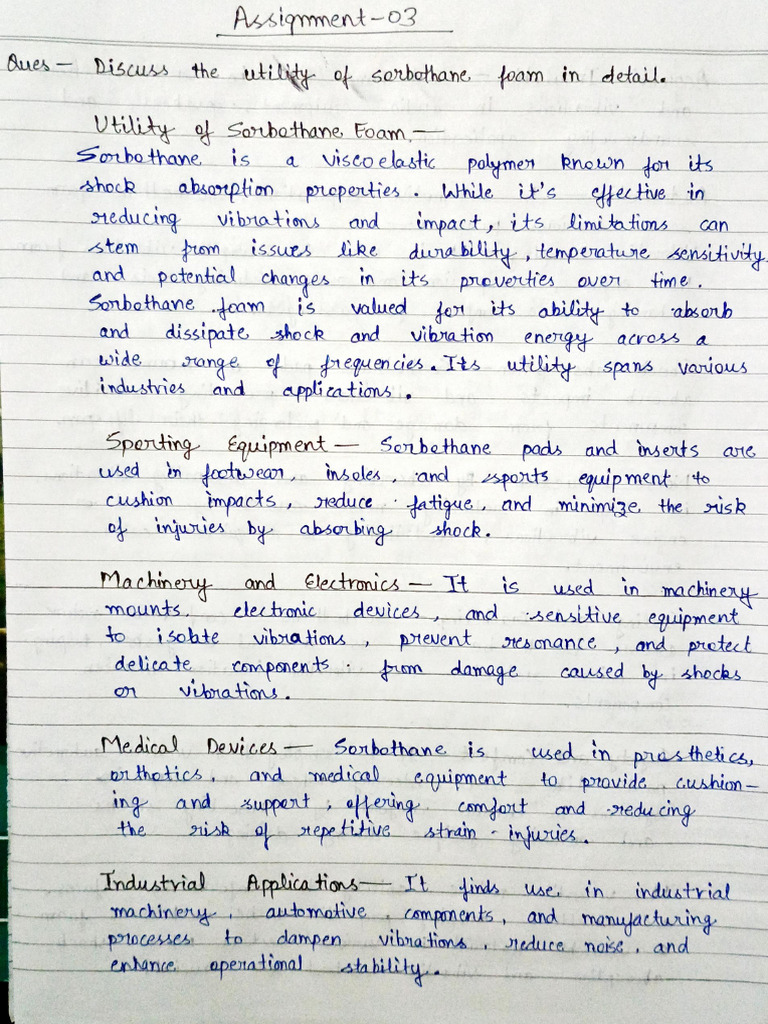 Assignment-03
Ques - Discuss the utility of sorbothane foam in detail.
Utility of Sorbothane Foam. -
Sorbothane is a viscoelastic polymer known for its
shock absorption properties. While it's effective in
reducing vibrations and impact, its limitations can
stem from issues like durability, temperature sensitivity,
and potential changes in its proverties over time.
Sorbothane foam is valued for its ability to absorb
and dissipate shock and vibration energy across a
wide range of frequencies. Its utility spans various
industries and applications.
Sporting Equipment - Sorbothane pads and inserts are
used in footwear, insoles, and sports equipment to
cushion impacts, reduce fatigue, and minimize the risk
of injuries by absorbing shock.
Machinery and Electronics - It is used in machinery
mounts, electronic devices, and sensitive equipment
to isolate vibrations, prevent resonance, and protect
delicate components from damage caused by shocks
or vibrations.
Medical Devices - Sorbothane is used in prosthetics,
orthotics, and medical equipment to provide cushion-
ing and support, offering comfort and reducing
the risk of repetitive strain injuries.
Industrial Applications - It finds use in industrial
machinery, automotive components, and manufacturing
processes to dampen vibrations, reduce noise, and
enhance operational stability.